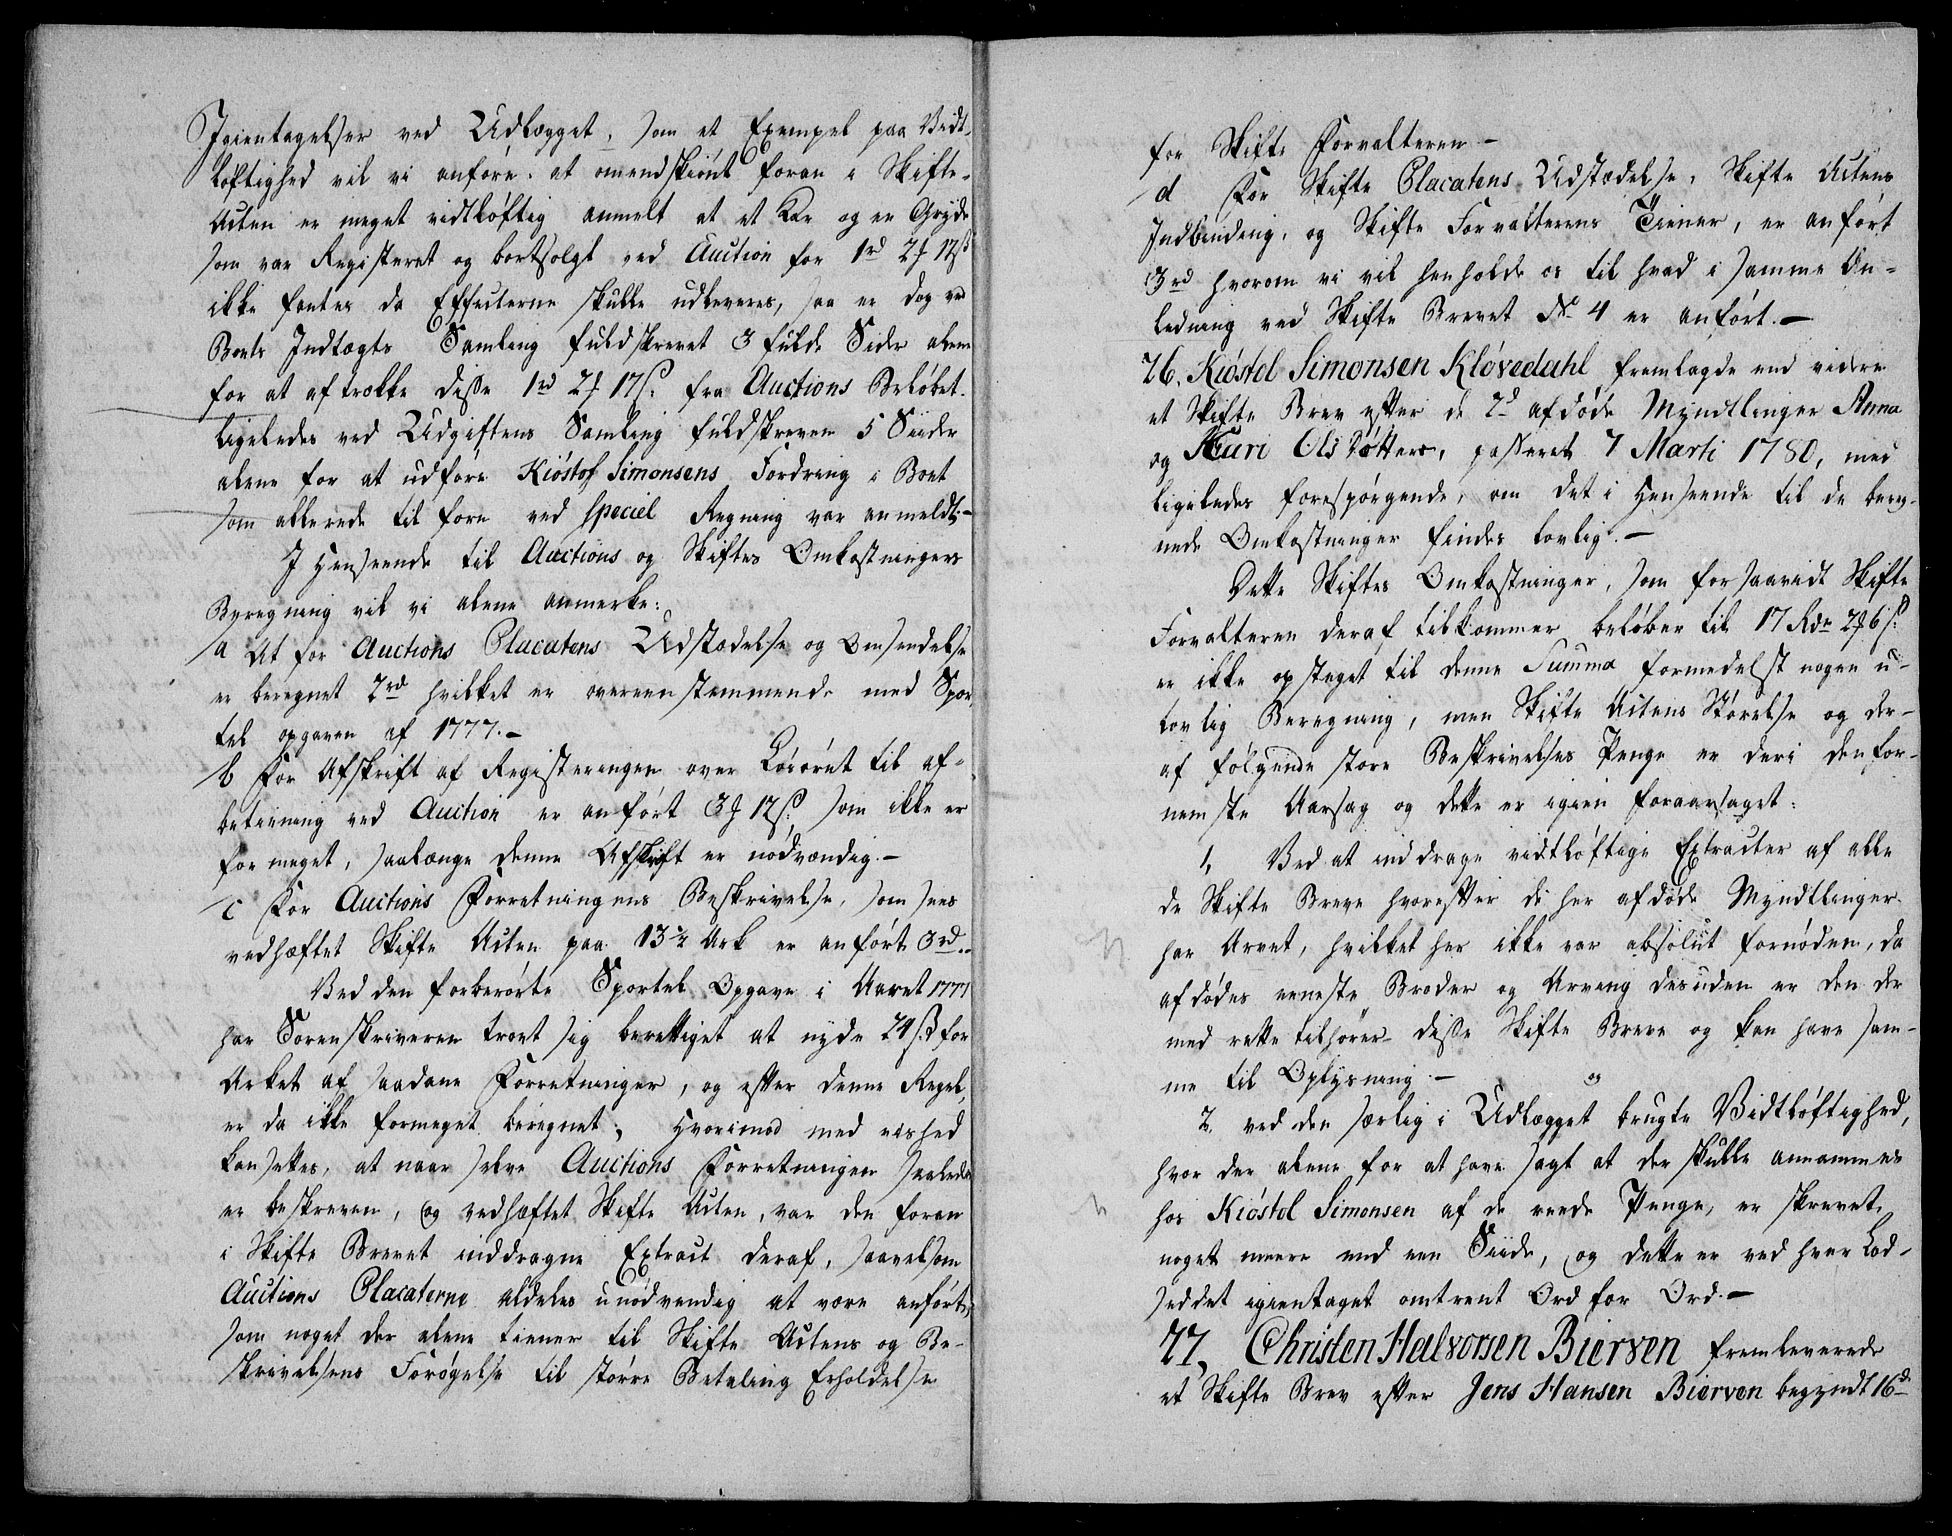 Igientagelser ved Udlægget, som et Exempel paa Vidt-
løftighed vil vi anføre, at omendskiønt foran i Skifte-
Acten er meget vidtløftig anmelt at et Kar og en Gryde
som var Registeret og bortsolgt ved Auction for 1rd 2ƒ 17ß
ikke fantes da Effecterne skulle udleveres, saa er dog ved
Boets Indtægts Samling fuldskrevet 3 fulde Sider alene
for at aftrække disse 1rd 2ƒ 17ß. fra Auctions Beløbet.
ligeledes ved Udgiftens Samling fuldskreven 5 Siider
alene for at udføre Kiøstof Simonsens Fordring i Boet
som allerede til forn ved speciel Regning var anmeldt.-
I Henseende til Auctions og Skiftes Omkostningers
Beregning vil vi alene anmerke:
a At for Auctions Placatens Udstædelse og Omsendelse
er beregnet 2rd hvilket er overeenstemmende med Spor-
tel opgaven af 1777.-
b For Afskrift af Registeringen over Løsøret til af-
betiening ved Auction er anført 3ƒ 12ß. som ikke er
formeget, saalænge denne Afskrift er nødvændig.-
c For Auctions Forretningens Beskrivelse, som sees
vedhæftet Skifte Acten paa 13½ Ark er anført 3rd..
Ved den forberørte Sportel Opgave i Aaret 1777
har Sorenskriveren troet sig berettiget at nyde 24ß for
Arket af saadane Forretninger, og efter denne Regel,
er da ikke formeget beregnet; Hvorimod med vished
kan settes, at naar selve Auctions Forretningen saaledes
er beskreven, og vedhæftet Skifte Acten, var den foran
i Skifte Brevet inddragne Extract deraf, saavelsom
Auctions Placaterne aldeles unødvendig at være anført,
som noget der alene tiener til Skifte Actens og Be-
skrivelsens Forøgelse til større Betaling Erholdelse
for Skifte Forvalteren-
d For Skifte Placatens Udstædelse, Skifte Actens
Indbinding, og Skifte Forvalterens Tiener, er anført
3rd hvorom vi vil henholde os til hvad i samme An-
ledning ved Skifte Brevet No 4 er anført.-
26. Kiøstol Simonsen Kløvedahl fremlagde end videre
et Skifte Brev efter de 2d afdøde Myndtlinger Anna
og Kari Ols Døttere, passeret 7 Marti 1780, med
ligeledes forespørgende, om det i Henseende til de bereg-
nede Omkostninger findes lovlig.-
Dette Skiftes Omkostninger, som forsaavidt Skifte
Forvalteren deraf tilkommer beløber til 17 Rdr 2ƒ 6ß.
er ikke opsteget til denne Summa formedelst nogen u-
lovlig Beregning, men Skifte Actens Størelse og der-
af følgende store Beskrivelses Penge er deri den for-
nemste Aarsag og dette er igien foraarsaget:
1, Ved at inddrage vidtløftige Extracter af alle
de Skifte Breve hvorefter de her afdøde Myndtlinger
har Arvet, hvilket her ikke var absolut fornøden, da
afdødes eeneste Broder og Arving desuden er den der
med rette tilhører disse Skifte Breve og kan have sam-
me til Oplysning.- og
2, ved den særlig i Udlægget brugte Vidtløftighed,
hvor der alene for at have sagt at der skulle annammes
hos Kiøstol Simonsen af de reede Penge, er skrevet
noget meere end een Siide, og dette er ved hver Lod-
seddel igientaget omtrent Ord for Ord.-
27, Christen Halvorsen Bierven fremleverede
et Skifte Brev efter Jens Hansen Bierven begyndt 16d